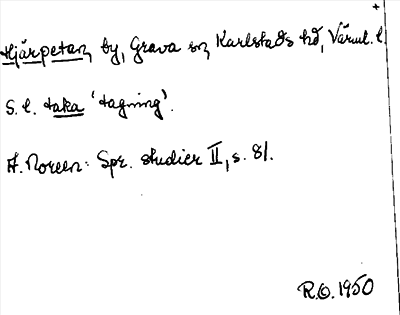 Hjärpetan, by, Grava sn, Karlstads hd, Värml. l.
S. l. taka 'tagning'.
A. Noreen: Spr. studier II, s. 81.
R.O. 1950